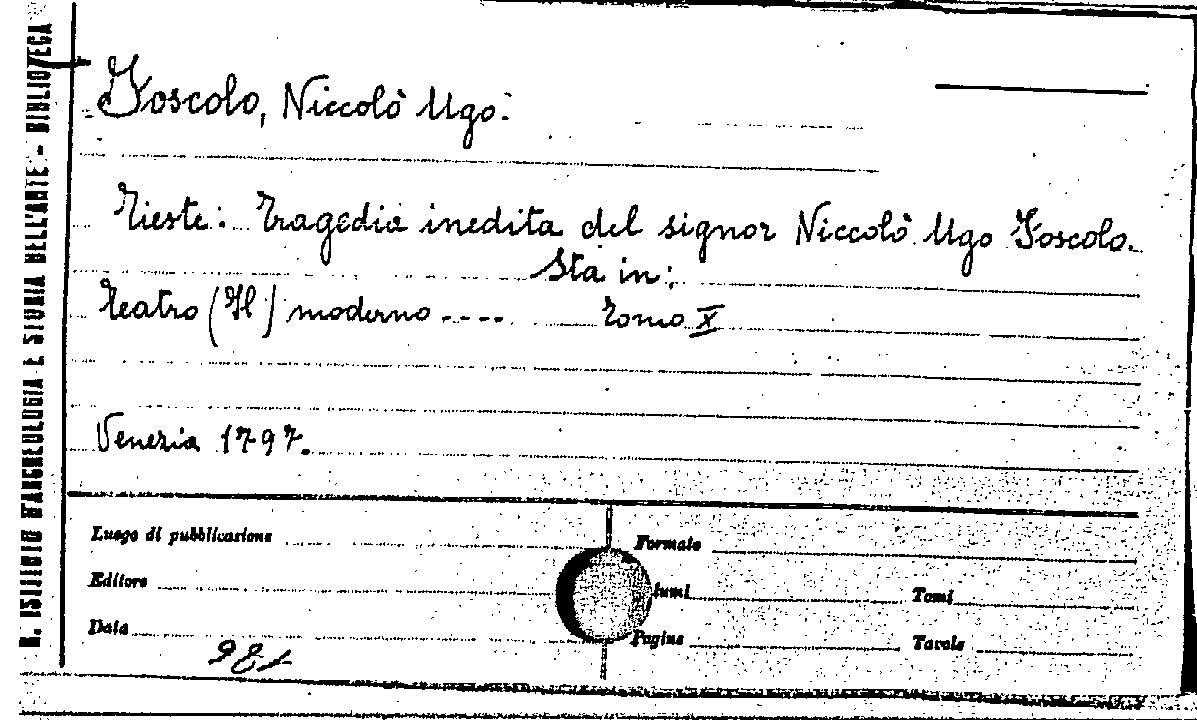 R. ISTITUTO D'ARCHEOLOGIA E STORIA DELL'ARTE - BIBLIOTECA
Foscolo, Niccolò Ugo.
Tieste: Tragedia inedita del signor Niccolò Ugo Foscolo.
Sta in:
Teatro (Il) moderno ---- Tomo X
Venezia 1797.
Luogo di pubblicazione
Formato
Editore
lumi
Tomi
Data
Pagine
Tavole